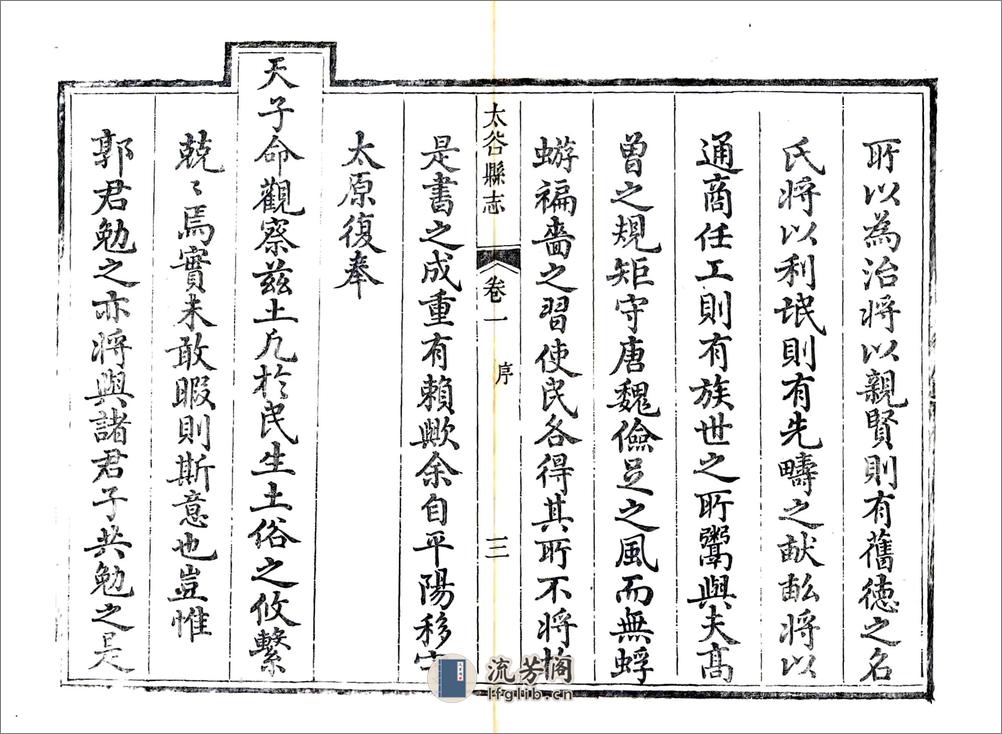 所以為治将以親賢則有舊徳之名
氏将以利氓則有先疇之畎畝将以
通商任工則有族世之所鬻與夫髙
曽之規矩守唐魏儉足之風而無蜉
蝣褊嗇之習使民各得其所不将
是書之成重有賴歟余自平陽移
太原復奉
天子命觀察兹土凡於民生土俗之攸繫
兢〻焉實未敢暇則斯意也豈惟
郭君勉之亦将與諸君子共勉之是
太谷縣志 卷一 序 三
流芳阁
lfglib.cn